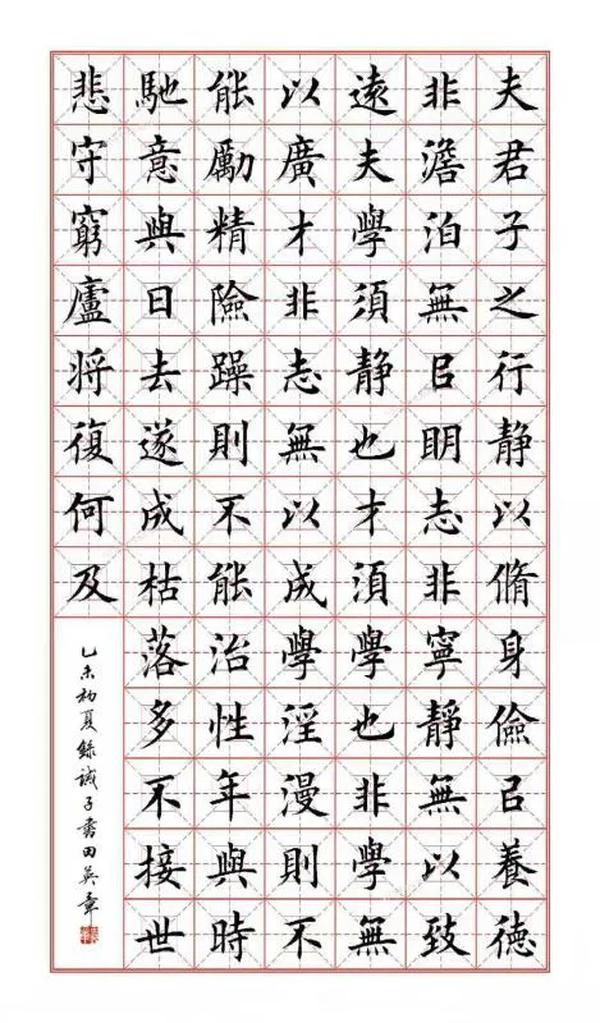 夫君子之行静以脩身儉㠯養德
非澹泊無㠯眀志非寧靜無以致
遠夫學須静也才須學也非學無
以廣才非志無以成學淫漫則不
能勵精險躁則不能治性年與時
馳意與日去遂成枯落多不接世
悲守窮廬将復何及
乙未初夏錄誡子書田英章